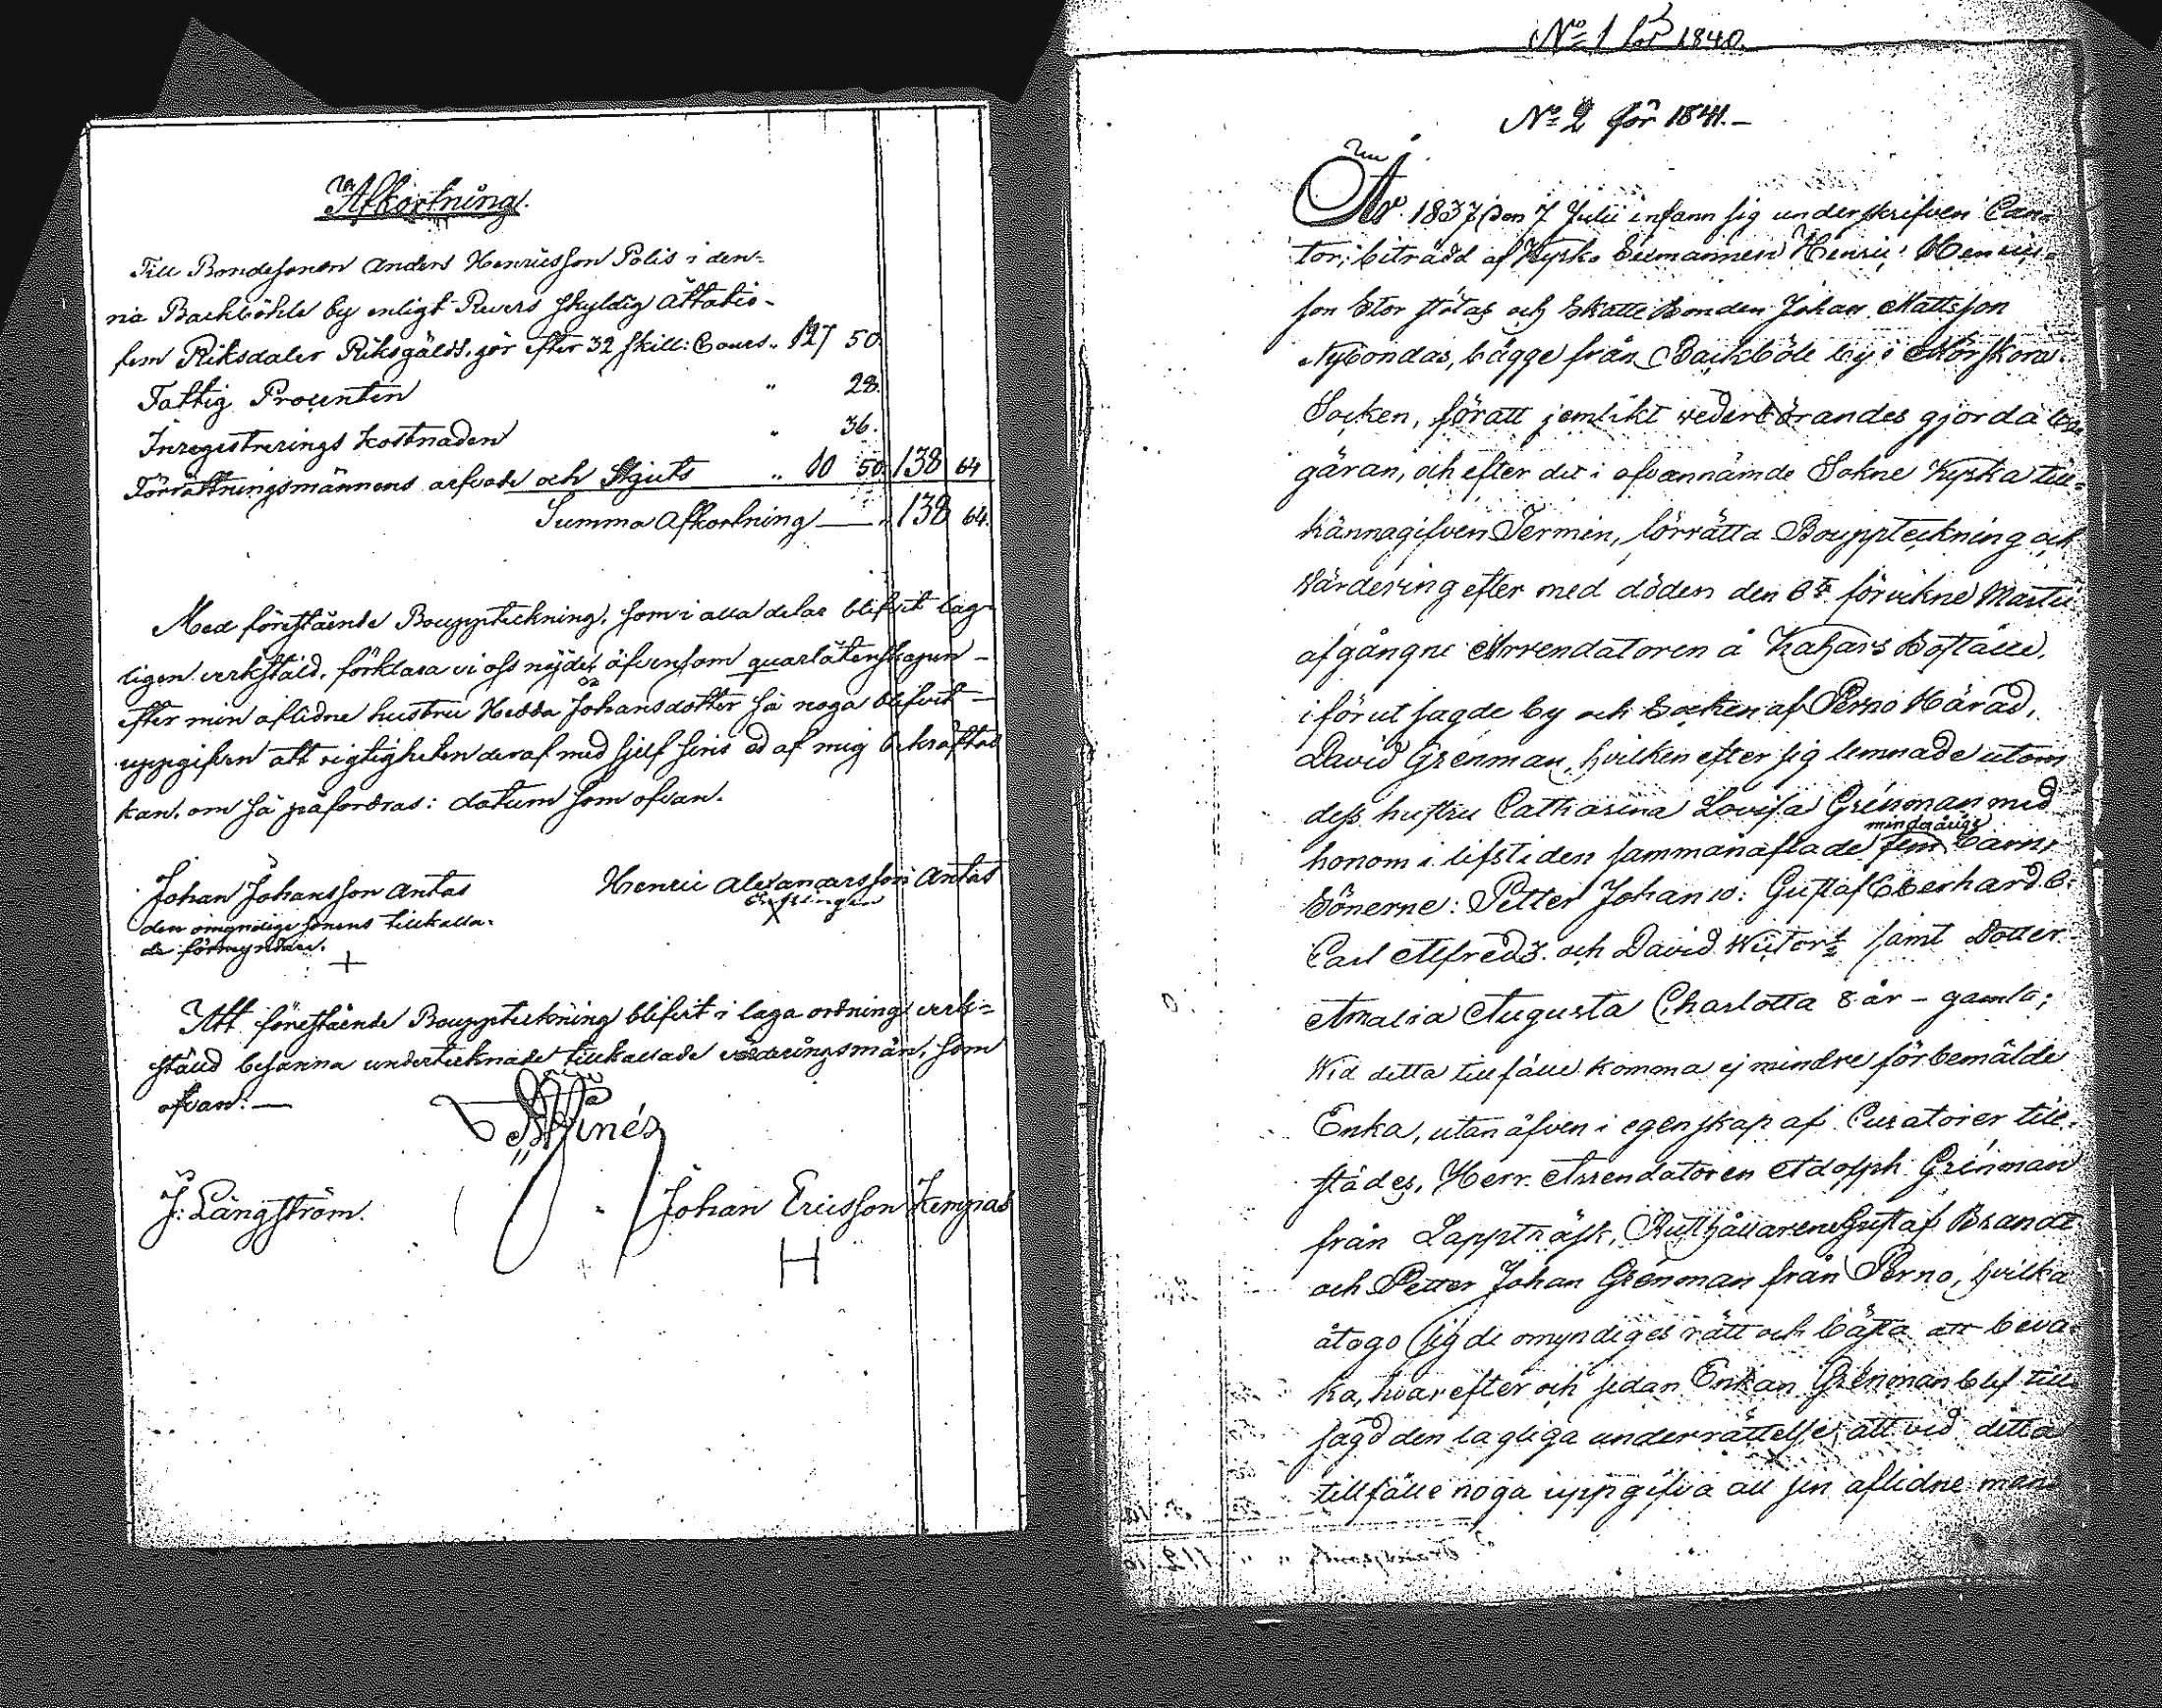 Afkortning.
Till Bondesonen Anders Henricsson Polis i den-
na Backböhle by enligt Revers skyldig Åttatio-
fem Riksdaler Riksgälds, gör efter 32 skill: Cours „ 127 50.
Fattig Procenten „ 28.
Inregistrerings kostnaden „ 36.
Förrättningsmännens arfvode och Skjuts „ 10 50. 138 64
Summa Afkortning — „ 138 64.
Med förestående Bouppteckning, som i alla delar blifvit lag-
ligen verkstäld, förklara vi oss nöjde, äfvensom quarlåtenskapen -
efter min aflidne hustru Hedda Johansdotter så noga blifvit -
uppgifven att rigtigheten deraf med sjelf sins ed af mig bekräftas
kan, om så påfordras: datum som ofvan.
Johan Johansson Antas Henric Alexandersson Antas
den omyndige sonens tillkalla-
de förmyndare.
Att förestående Bouppteckning blifvit i laga ordning verk-
stäld besanna undertecknade tillkallade värderingsmän, som
ofvan: —
J: Långström. Johan Ericsson Kempas
H
No 1 för 1840.
No 2 för 1841.-
År 1837 den 7 Julii infann sig underskrifven Can-
tor, biträdd af Kyrko Sexmannen Henric Henrics-
son Stor Stötas och Skattebonden Johan Mattsson
Nybondas, bägge från Backböle by i Mörskom
Socken, föratt jemlikt vederbörandes gjorda be-
gäran, och efter det i ofvannämde Sokne Kyrka till-
kännagifven Termin, förrätta Bouppteckning och
Värdering efter med döden den 6te förvikne Martii
afgångne Arrendatoren å Kahars Boställe,
i förut sagde by och Socken af Perno Härad,
David Grenman, hvilken efter sig lemnade utom
dess hustru Catharina Lovisa Grenman med
honom i lifstiden sammanaflade fem minderåriga barn,
Sönerne: Petter Johan 10: Gustaf Eberhard 6.
Carl Alfred 3. och David Wictor ½ samt Dotter
Amalia Augusta Charlotta 8 år - gamla;
Wid detta tillfälle komma ej mindre förbemälde
Enka, utan äfven i egenskap af Curatorer till-
städes, Herr Arrendatoren Adolph Grenman
från Lappträsk, Rusthållarene Gustaf Brandt
och Petter Johan Grenman från Perno, hvilka
åtogo sig de omyndiges rätt och bästa att beva-
ka, hvarefter och sedan Enkan Grenman blef till-
sagd den lagliga underrättelse, att vid detta
tillfälle noga uppgifva all sin aflidne mans